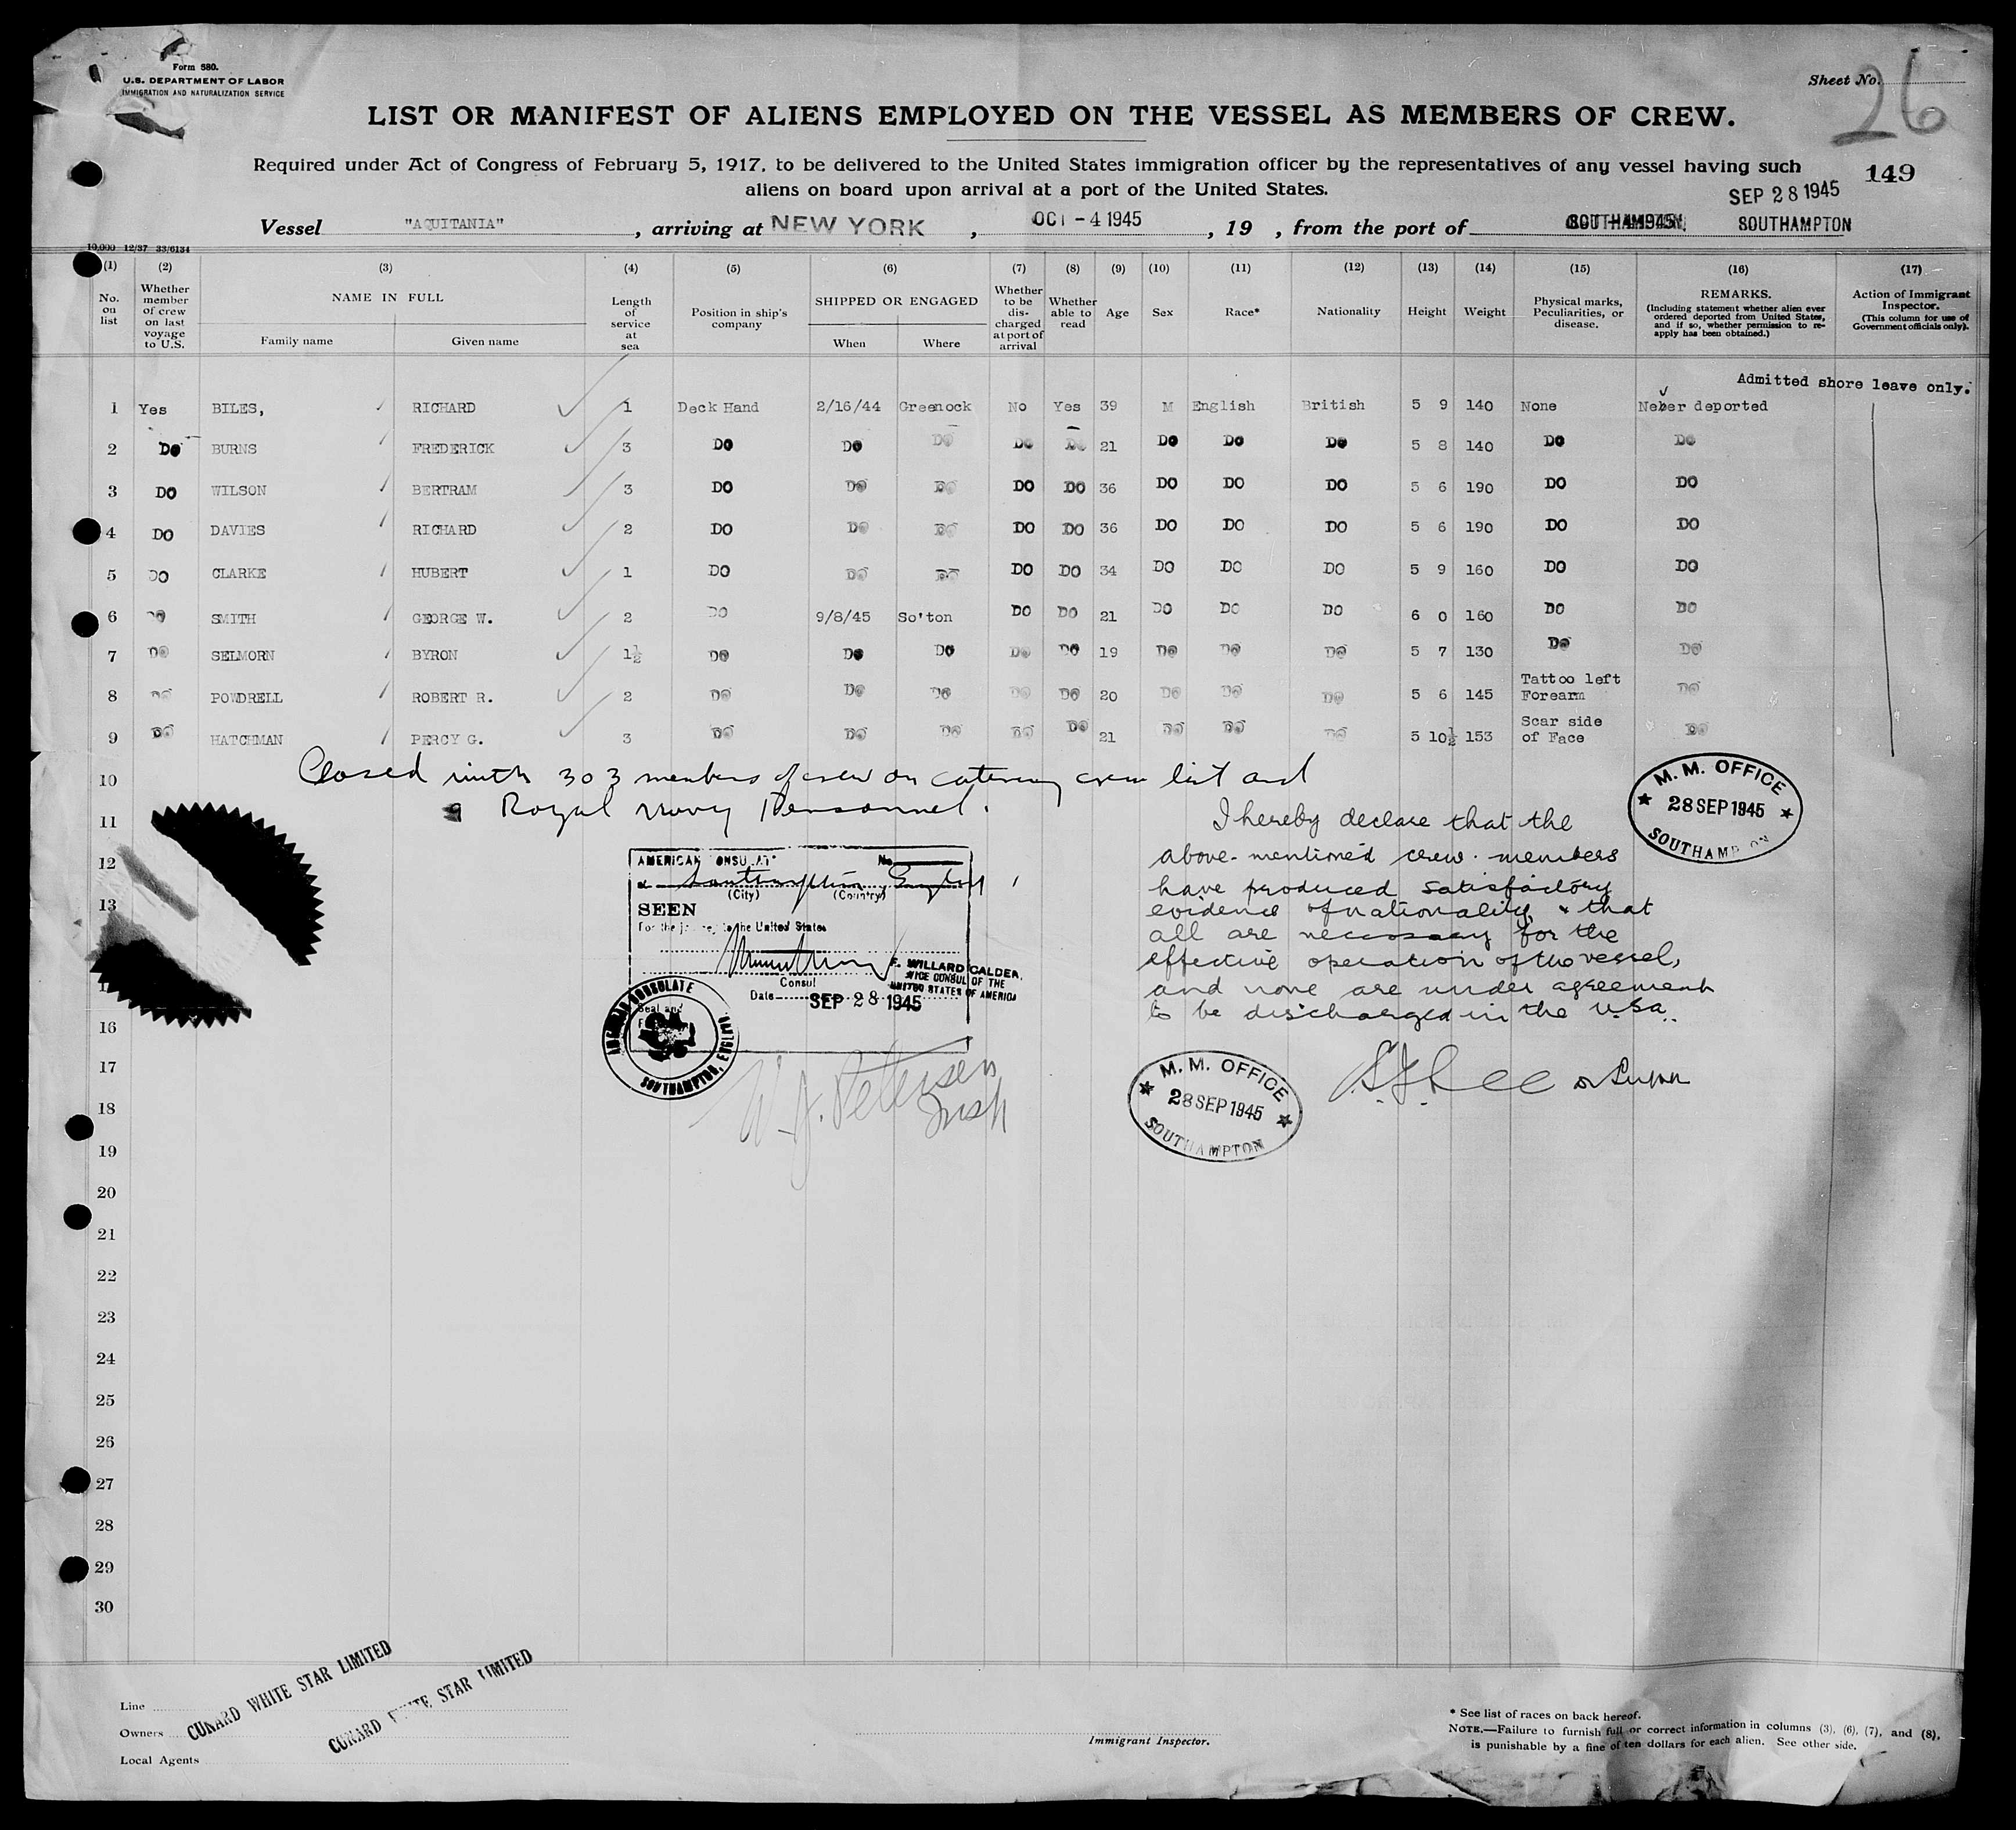 Form 680.
U.S. DEPARTMENT OF LABOR
IMMIGRATION AND NATURALIZATION SERVICE
Sheet No. 26
LIST OR MANIFEST OF ALIENS EMPLOYED ON THE VESSEL AS MEMBERS OF CREW.
Required under Act of Congress of February 5, 1917, to be delivered to the United States immigration officer by the representatives of any vessel having such
aliens on board upon arrival at a port of the United States.
149
SEP 28 1945
Vessel "AQUITANIA", arriving at NEW YORK, OCT -4 1945, 19 , from the port of SOUTHAMPTON
10,000 12/37 33/6134
(1) (2) (3) (4) (5) (6) (7) (8) (9) (10) (11) (12) (13) (14) (15) (16) (17)
No. on list
Whether member of crew on last voyage to U.S.
NAME IN FULL
Family name
Given name
Length of service at sea
Position in ship's company
SHIPPED OR ENGAGED
When
Where
Whether to be discharged at port of arrival
Whether able to read
Age
Sex
Race*
Nationality
Height
Weight
Physical marks, Peculiarities, or disease.
REMARKS.
(Including statement whether alien ever ordered deported from United States, and if so, whether permission to re-apply has been obtained.)
Action of Immigrant Inspector.
(This column for use of Government officials only).
Admitted shore leave only.
1 Yes BILES, RICHARD 1 Deck Hand 2/16/44 Greenock No Yes 39 M English British 5 9 140 None Never deported
2 DO BURNS FREDERICK 3 DO DO DO DO DO 21 DO DO DO 5 8 140 DO DO
3 DO WILSON BERTRAM 3 DO DO DO DO DO 36 DO DO DO 5 6 190 DO DO
4 DO DAVIES RICHARD 2 DO DO DO DO DO 36 DO DO DO 5 6 190 DO DO
5 DO CLARKE HUBERT 1 DO DO DO DO DO 34 DO DO DO 5 9 160 DO DO
6 DO SMITH GEORGE W. 2 DO 9/8/45 So'ton DO DO 21 DO DO DO 6 0 160 DO DO
7 DO SELMORN BYRON 1½ DO DO DO DO DO 19 DO DO DO 5 7 130 DO DO
8 DO POWDRELL ROBERT R. 2 DO DO DO DO DO 20 DO DO DO 5 6 145 Tattoo left Forearm DO
9 DO HATCHMAN PERCY G. 3 DO DO DO DO DO 21 DO DO DO 5 10½ 153 Scar side of Face DO
10 Closed with 303 members of crew on catering crew list and
9 Royal Navy Personnel.
11
12
13
16
17
18
19
20
21
22
23
24
25
26
27
28
29
30
I hereby declare that the
above-mentioned crew members
have produced satisfactory
evidence of nationality & that
all are necessary for the
effective operation of the vessel,
and none are under agreement
to be discharged in the U.S.A.
M. M. OFFICE
28 SEP 1945
SOUTHAMPTON
AMERICAN CONSULATE No.
at Southampton England
(City) (Country)
SEEN
For the journey to the United States
Consul
E. WILLARD CALDER,
VICE CONSUL OF THE
UNITED STATES OF AMERICA
Date SEP 28 1945
AMERICAN CONSULATE
SOUTHAMPTON, ENGLAND
W. J. Petersen
Insp
M. M. OFFICE
28 SEP 1945
SOUTHAMPTON
Line
Owners
Local Agents
CUNARD WHITE STAR LIMITED
CUNARD WHITE STAR LIMITED
Immigrant Inspector.
* See list of races on back hereof.
NOTE.—Failure to furnish full or correct information in columns (3), (6), (7), and (8),
is punishable by a fine of ten dollars for each alien. See other side.